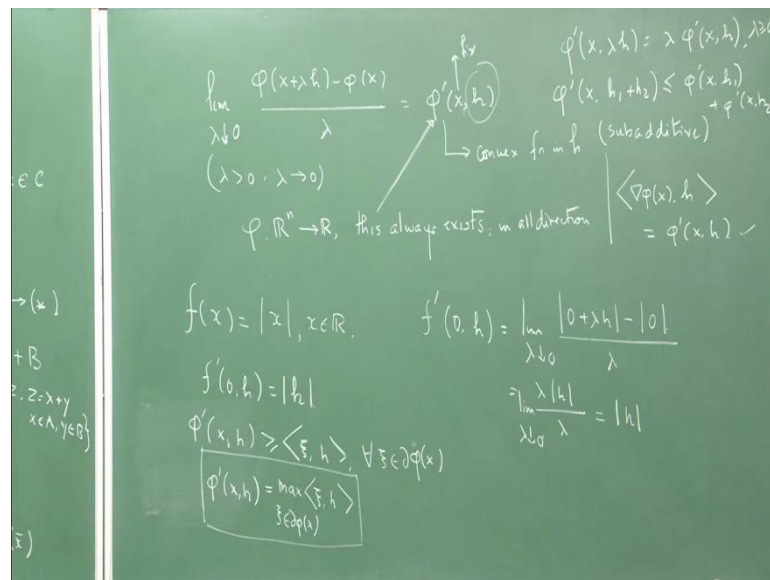 ∈ C
→ (*)
+ B
z = x+y
x∈A, y∈B}
x̄)
lim_{λ↓0} (φ(x+λh) − φ(x)) / λ = φ'(x, h)
fix
(λ>0, λ→0)
→ convex fn in h (subadditive)
φ'(x, λh) = λ φ'(x, h), λ≥0
φ'(x, h₁+h₂) ≤ φ'(x, h₁)
+ φ'(x, h₂
φ: ℝⁿ → ℝ, this always exists, in all direction
⟨∇φ(x), h⟩
= φ'(x, h) ✓
f(x) = |x|, x∈ℝ.
f'(0, h) = lim_{λ↓0} (|0+λh| − |0|) / λ
= lim_{λ↓0} λ|h| / λ = |h|
f'(0, h) = |h|
φ'(x, h) ≥ ⟨ξ, h⟩, ∀ ξ∈∂φ(x)
φ'(x, h) = max_{ξ∈∂φ(x)} ⟨ξ, h⟩